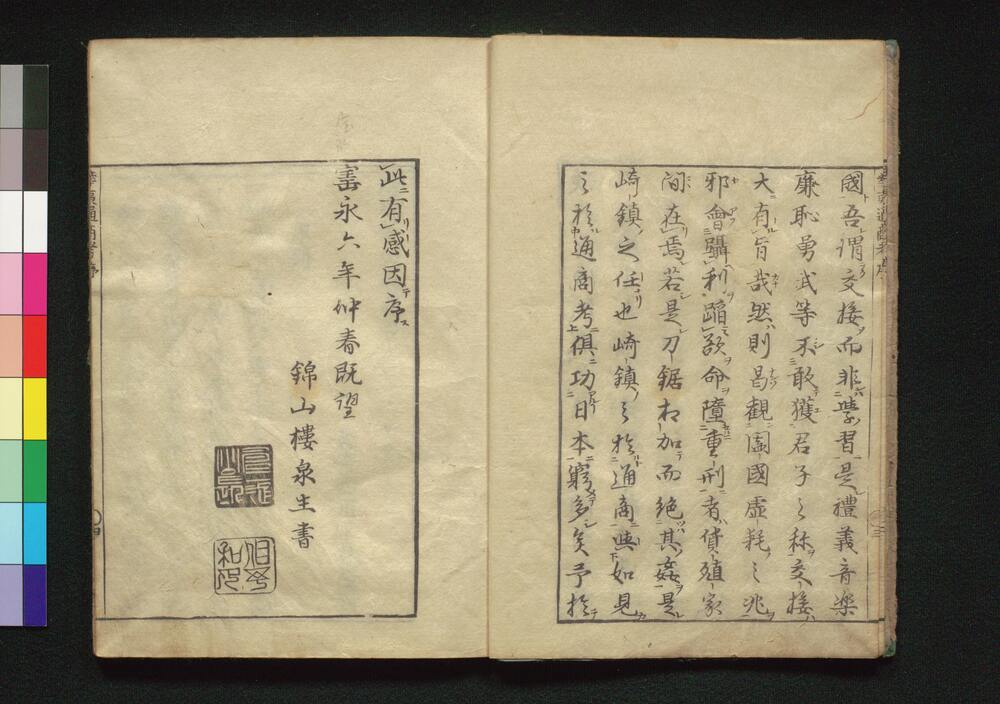 國吾謂交接而非學習是禮義音楽
廉恥勇武等不敢獲君子之称交接
大有旨哉然則曷觀國虛耗之兆
邪會躡利蹈欲命障重刑者貨殖家
間在焉若是刀鋸相加而絶其姦是
崎鎮之任也崎鎮之於通商與如見
之於通商考俱功日本窮多矣予於
此有感因序
寳永六年仲春既望
錦山樓泉生書